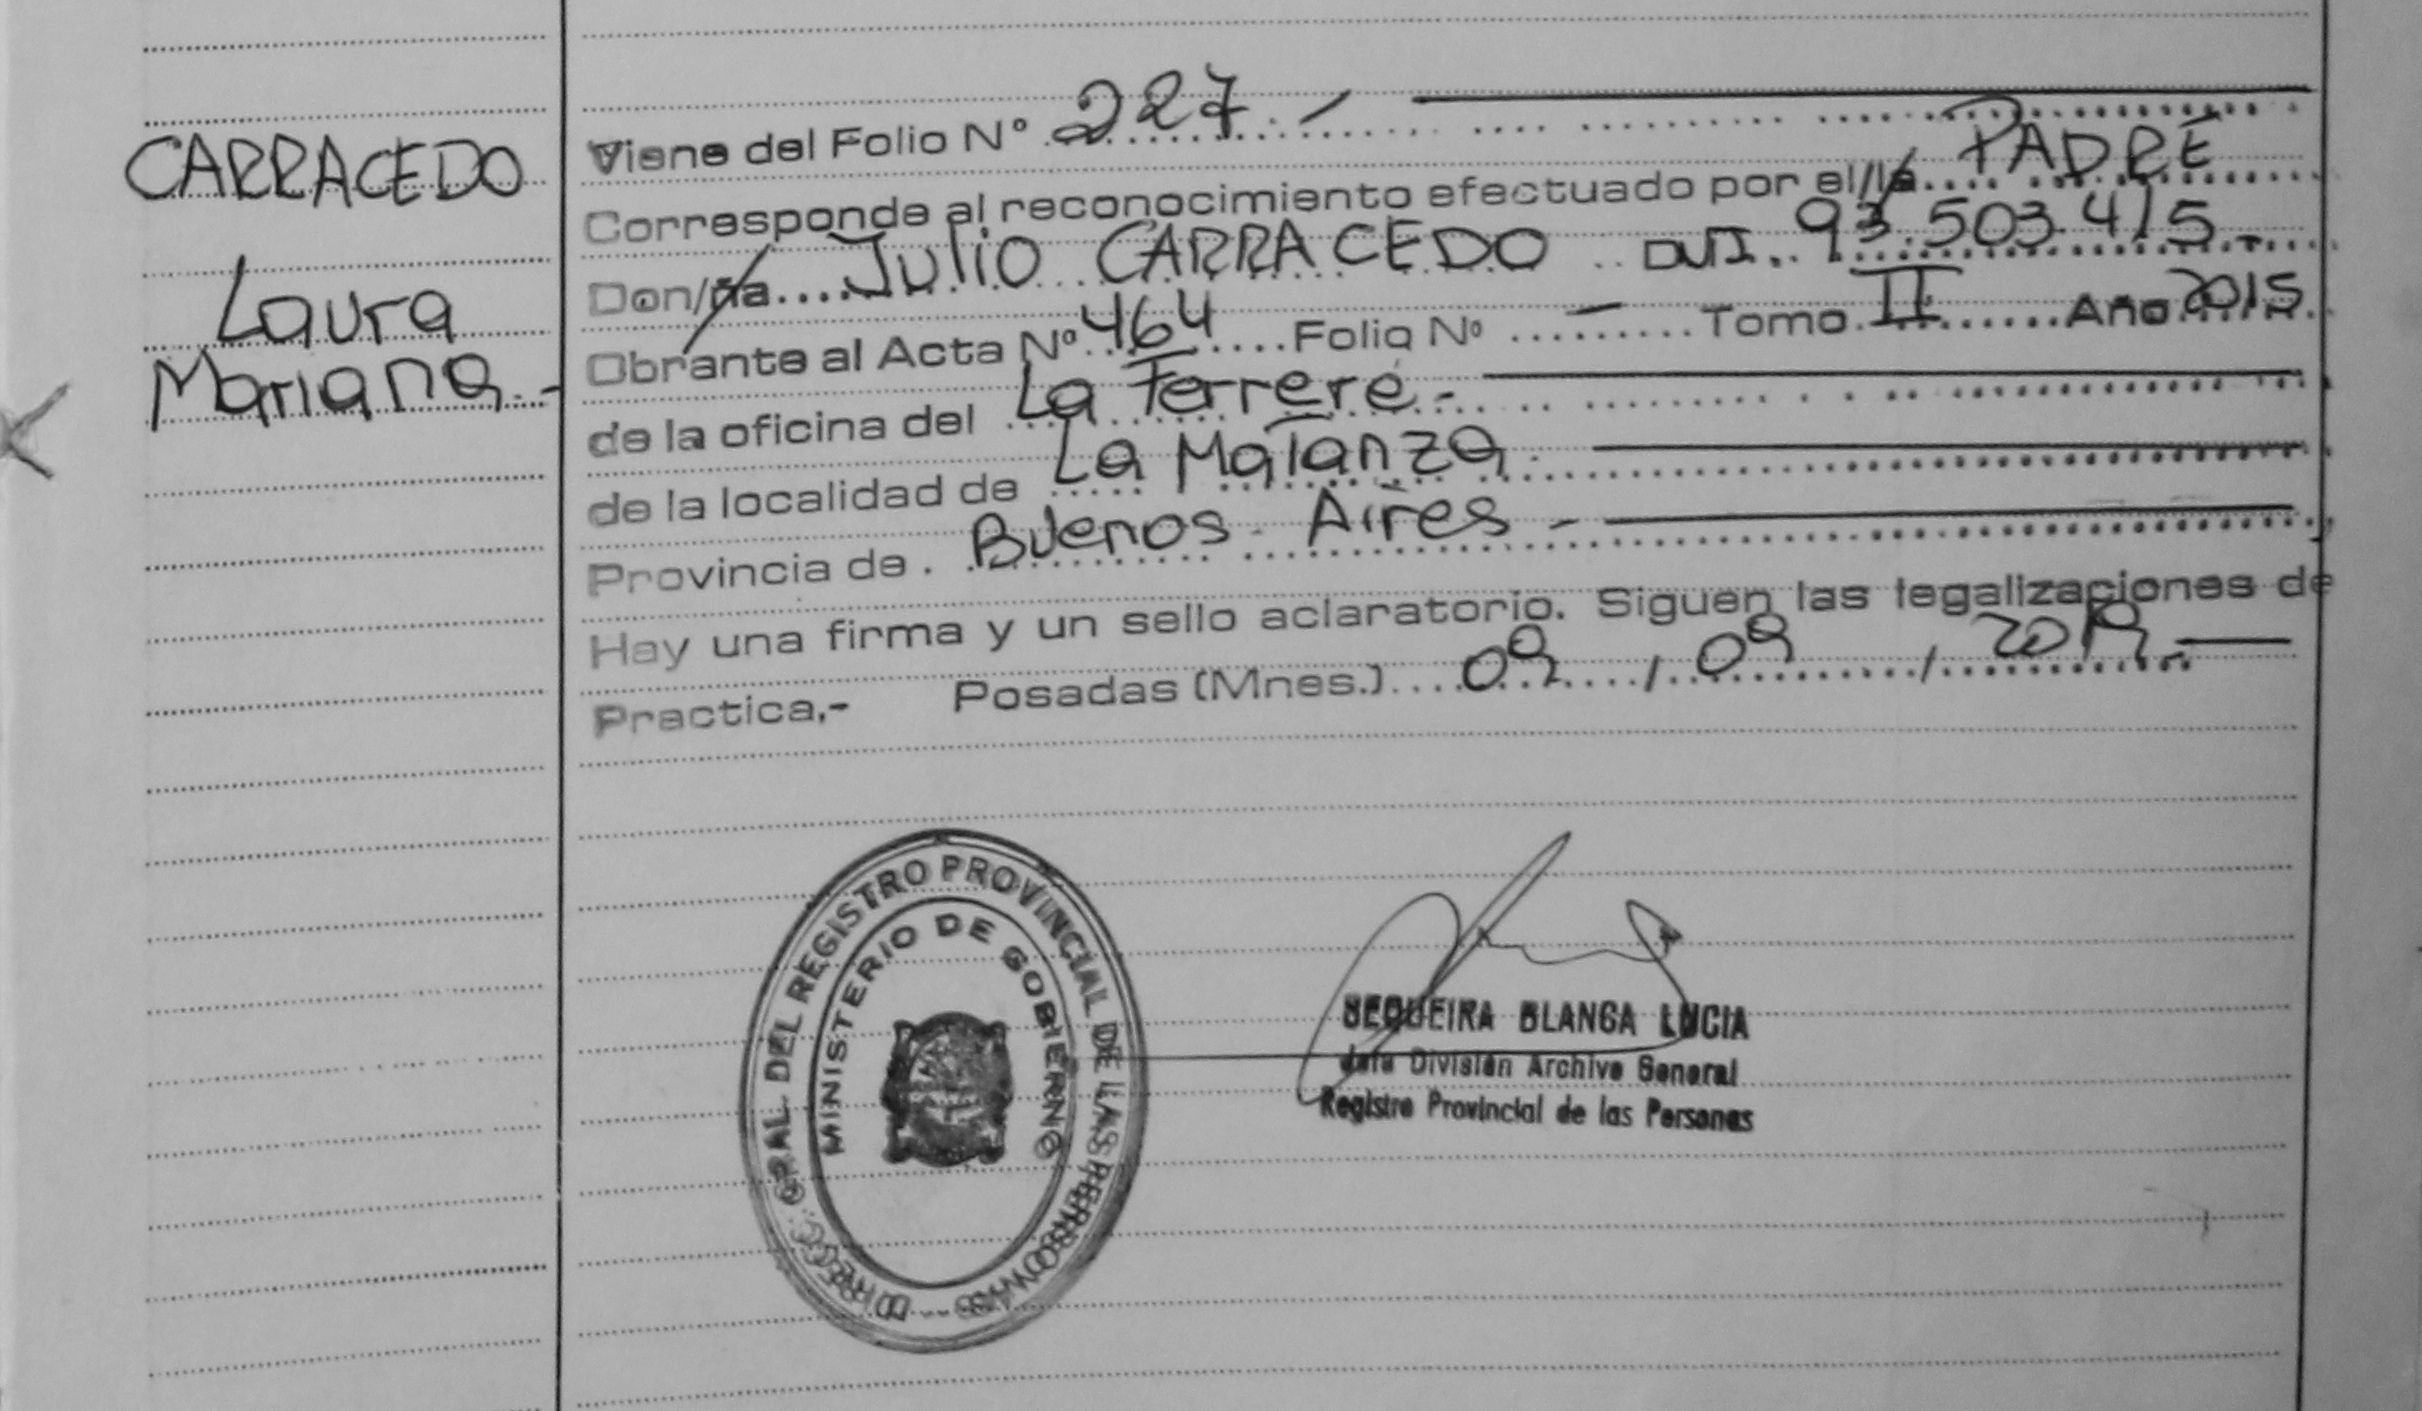 CARRACEDO
Laura
Mariana.-
Viene del Folio N° 227.-
Corresponde al reconocimiento efectuado por el/la PADRE
Don/ña Julio CARRACEDO DNI. 93.503.415.-
Obrante al Acta N° 464 Folio N° - Tomo II Año 2015
de la oficina del La Ferrere.-
de la localidad de La Matanza.
Provincia de. Buenos Aires -
Hay una firma y un sello aclaratorio. Siguen las legalizaciones de
Practica,- Posadas (Mnes.) 09/09/2019.-
DIRECC. GRAL. DEL REGISTRO PROVINCIAL DE LAS PERSONAS
MINISTERIO DE GOBIERNO
SEQUEIRA BLANCA LUCIA
Jefa División Archivo General
Registro Provincial de las Personas